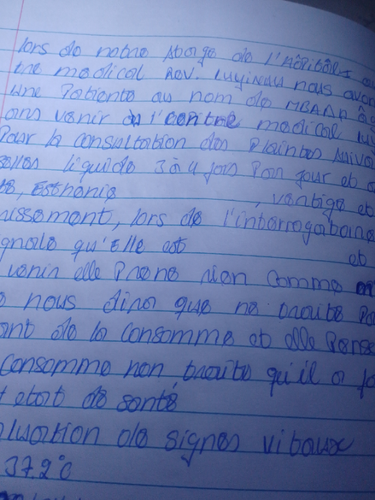 lors de notre stage de l'Hôpital
tre medical Rev. LUYINDU nous avon
une Patiente au nom de MBAAA
ans venir l'centre medical lu
Pour la consultation des Plaintes suiva
selles liquide 3 à 4 fois Par jour et
, Esthénie , vertige et
nissement, lors de l'interrogatoire
gnale qu'Elle est et
venir elle Prene rien comme
nous dire que ne traite
ant de la consomme et elle Pense
consomme non traite qu'il a fa
etat de santé
luation de signes vitaux
37.2°c